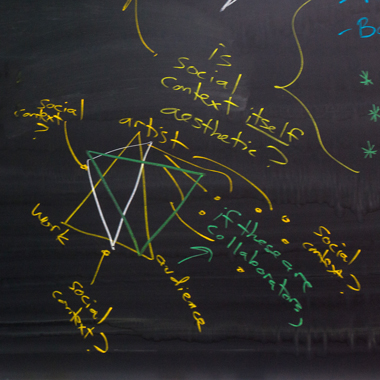 is
social
context itself
aesthetic?
social
context
?
artist
work
audience
social
context?
if these are
collaborators
social
context?